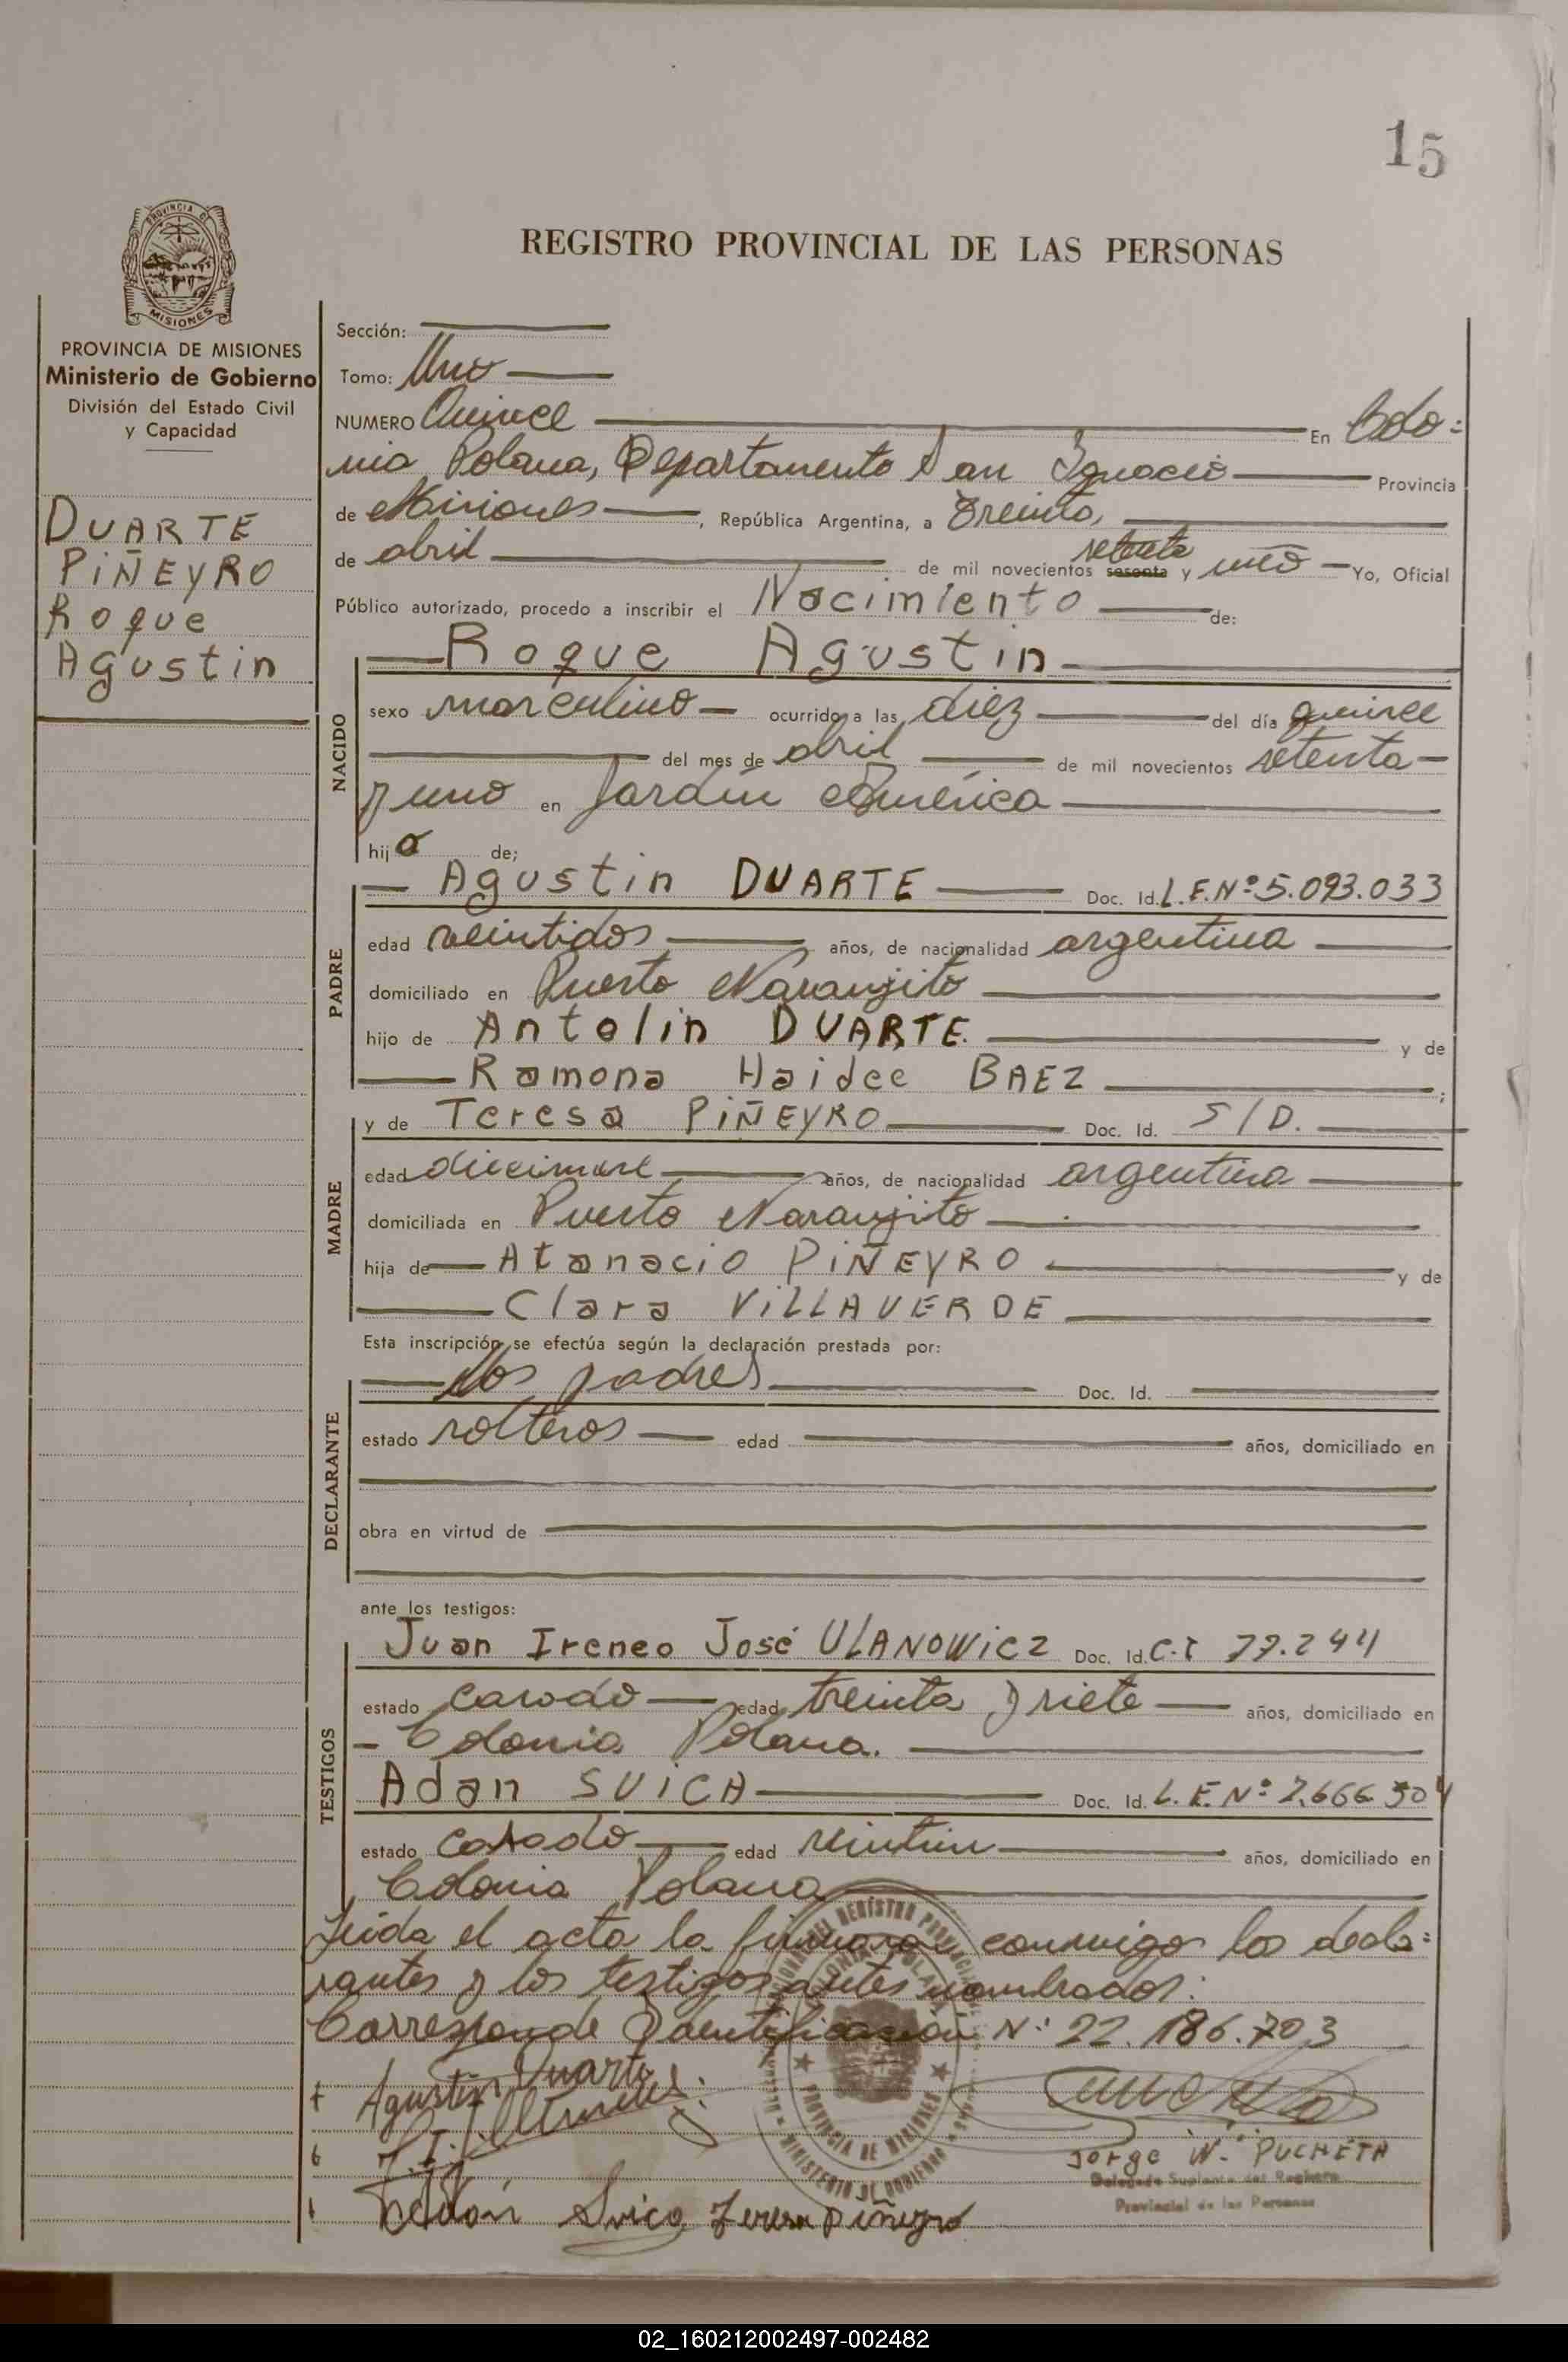 15
PROVINCIA DE
MISIONES
REGISTRO PROVINCIAL DE LAS PERSONAS
PROVINCIA DE MISIONES
Ministerio de Gobierno
División del Estado Civil
y Capacidad
DUARTE
PIÑEYRO
Roque
Agustin
Sección:
Tomo: Uno
NUMERO Quince En Colo=
nia Polana, Departamento San Ignacio Provincia
de Misiones, República Argentina, a Treinta,
de abril de mil novecientos sesenta setenta y uno Yo, Oficial
Público autorizado, procedo a inscribir el Nacimiento de:
Roque Agustin
NACIDO
sexo masculino ocurrido a las diez del día quince
del mes de abril de mil novecientos setenta
y uno en Jardín América
hijo de;
PADRE
Agustin DUARTE Doc. Id. L.E.Nº 5.093.033
edad veintidos años, de nacionalidad argentina
domiciliado en Puerto Naranjito
hijo de Antolin DUARTE. y de
Ramona Haidee BAEZ ;
MADRE
y de Teresa PIÑEYRO Doc. Id. S/D.
edad diecinueve años, de nacionalidad argentina
domiciliada en Puerto Naranjito
hija de Atanacio PIÑEYRO y de
Clara VILLAVERDE
Esta inscripción se efectúa según la declaración prestada por:
DECLARANTE
los padres Doc. Id.
estado solteros edad años, domiciliado en
obra en virtud de
ante los testigos:
TESTIGOS
Juan Ireneo José ULANOWICZ Doc. Id. C.I 77.244
estado casado edad treinta y siete años, domiciliado en
Colonia Polana.
Adan SVICA Doc. Id. L.E.Nº 7.666.504
estado casado edad veintiun años, domiciliado en
Colonia Polana
Leida el acta la firmaron conmigo los decla=
rantes y los testigos antes nombrados:
Corresponde Identificación Nº 22.186.703
Agustin Duarte
Jorge W. PUCHETA
Delegado Suplente del Registro
Provincial de las Personas
Adán Svica Teresa Piñeyro
PROVINCIA DE MISIONES
MINISTERIO DE GOBIERNO
02_160212002497-002482